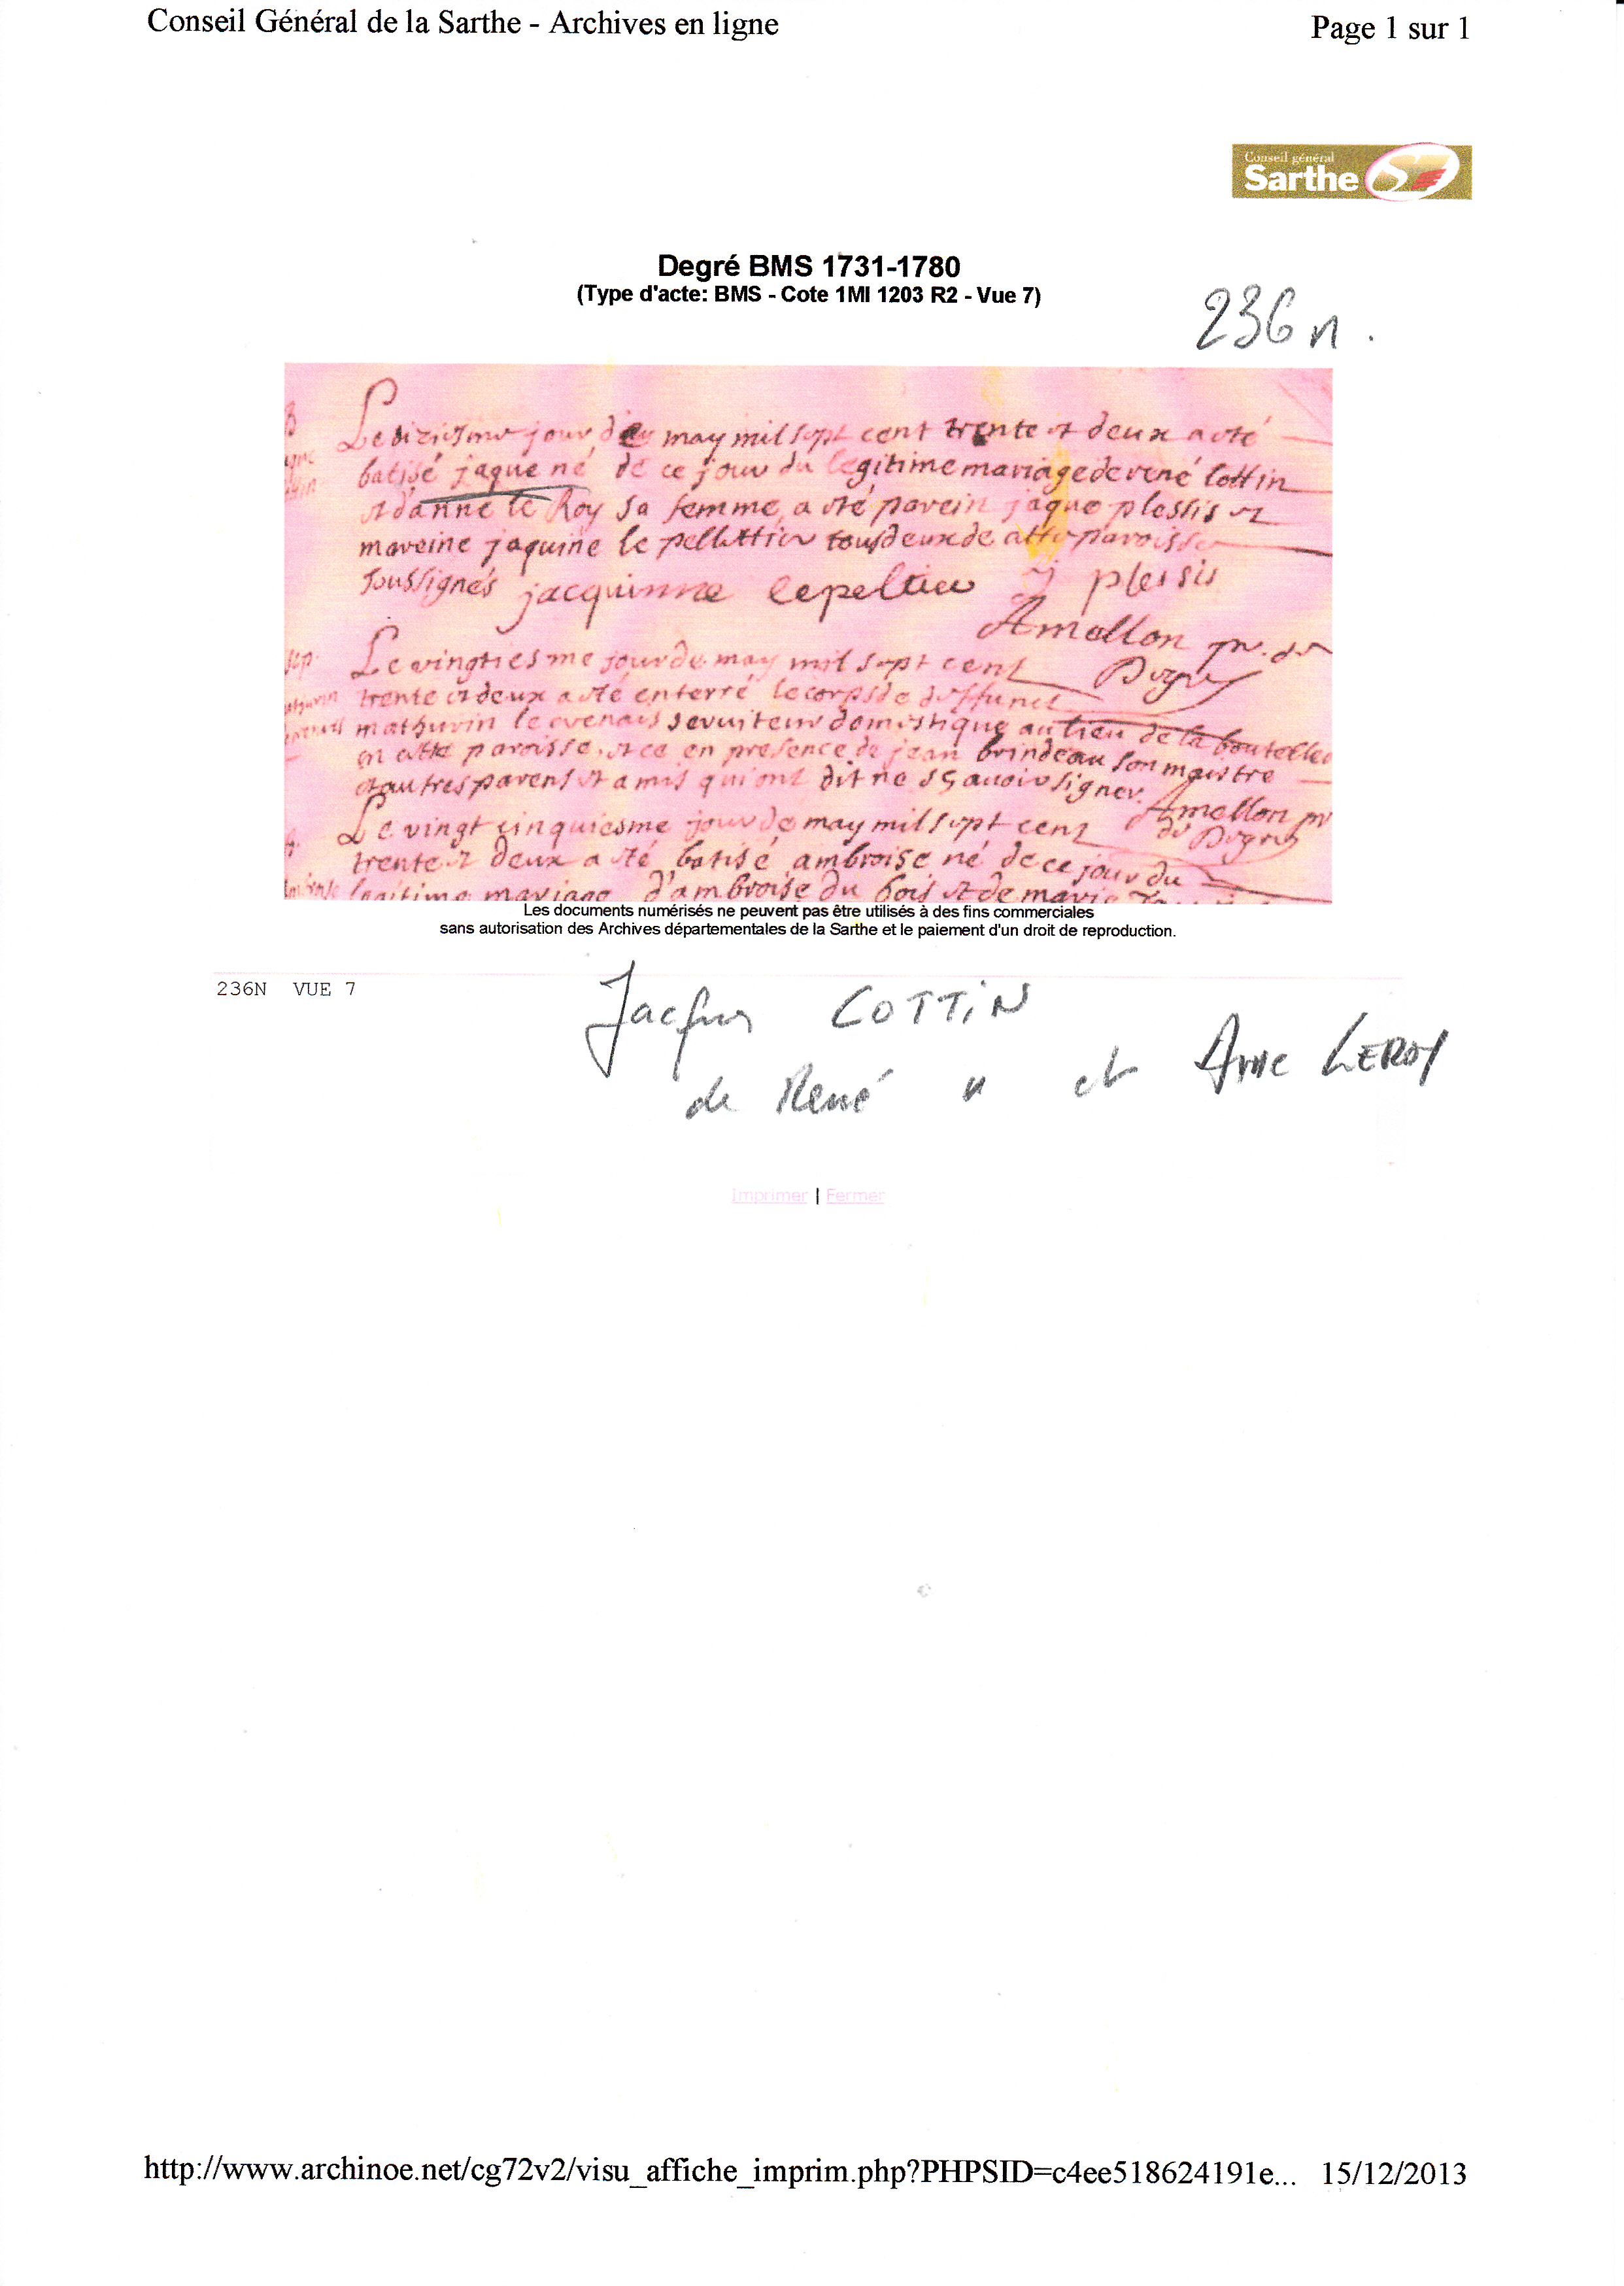 Conseil Général de la Sarthe - Archives en ligne
Page 1 sur 1
Conseil général
Sarthe
Degré BMS 1731-1780
(Type d'acte: BMS - Cote 1MI 1203 R2 - Vue 7)
236 n.
B
Le diziesme jour de may mil sept cent trente et deux a eté
batisé jaque né de ce jour du legitime mariage de rené Cottin
et d'anne le Roy sa femme, a eté parein jaque plessis et
mareine jaquine le pellettier tous deux de cette paroisse
soussignés jacquinne lepeltier j plessis
Amellon
sep.
Le vingtiesme jour de may mil sept cent
trente et deux a eté enterré le corps de deffunct
mathurin le evenais serviteur domestique au lieu de la boutelleé
en cette paroisse, et ce en presence de jean brindeau son maistre
et autres parens et amis qui ont dit ne sçavoir signer. Amellon
Le vingt cinquiesme jour de may mil sept cent
trente et deux a eté batisé ambroise né de ce jour du
legitime mariage d'ambroise du bois et de marie
Les documents numérisés ne peuvent pas être utilisés à des fins commerciales
sans autorisation des Archives départementales de la Sarthe et le paiement d'un droit de reproduction.
236N VUE 7
Jacques COTTIN
de René " et Anne LEROY
Imprimer | Fermer
http://www.archinoe.net/cg72v2/visu_affiche_imprim.php?PHPSID=c4ee518624191e... 15/12/2013